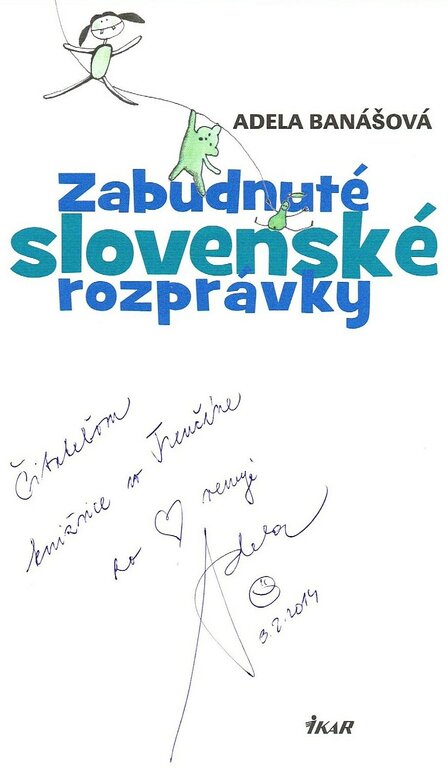 ADELA BANÁŠOVÁ
Zabudnuté
slovenské
rozprávky
Čitateľom
knižnice v Trenčíne
zo ♡ venuje
Adela
3.2.2014
IKAR